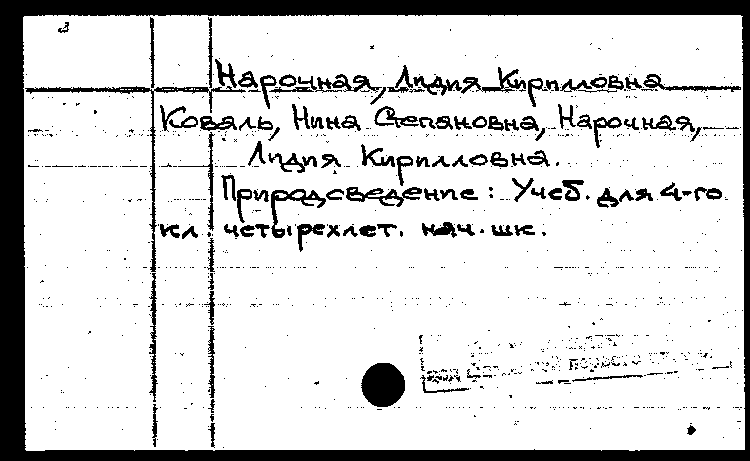 Нарочная, Лидия Кирилловна
Коваль, Нина Степановна, Нарочная,
Лидия Кирилловна.
Природоведение: Учеб. для 4-го
кл. четырехлет. нач. шк.
первого